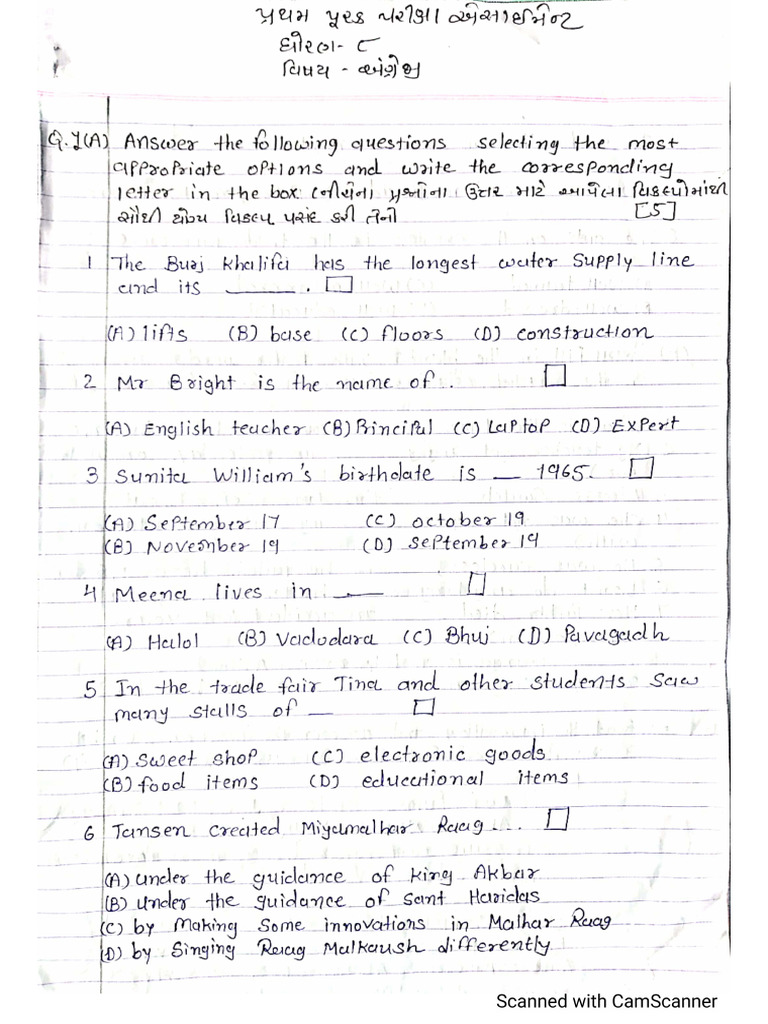 પ્રથમ પૂરક પરીક્ષા એસાઈમેન્ટ
ધોરણ - ૮
વિષય - અંગ્રેજી
Q.1(A) Answer the following questions selecting the most
appropriate options and write the corresponding
letter in the box (નીચેના પ્રશ્નોના ઉત્તર માટે આપેલા વિકલ્પોમાંથી
સૌથી યોગ્ય વિકલ્પ પસંદ કરી લખો [5]
1 The Burj Khalifa has the longest water supply line
and its ______ . □
(A) lifts (B) base (C) floors (D) construction
2 Mr Bright is the name of . □
(A) English teacher (B) Principal (C) Laptop (D) Expert
3 Sunita William's birthdate is __ 1965. □
(A) September 17 (C) october 19
(B) November 19 (D) September 19
4 Meena lives in ___ □
(A) Halol (B) Vadodara (C) Bhuj (D) Pavagadh
5 In the trade fair Tina and other students saw
many stalls of __ □
(A) Sweet shop (C) electronic goods
(B) food items (D) educational items
6 Tansen created Miyamalhar Raag ... □
(A) under the guidance of king Akbar
(B) under the guidance of sant Haridas
(C) by Making some innovations in Malhar Raag
(D) by Singing Raag Malkaush differently
Scanned with CamScanner